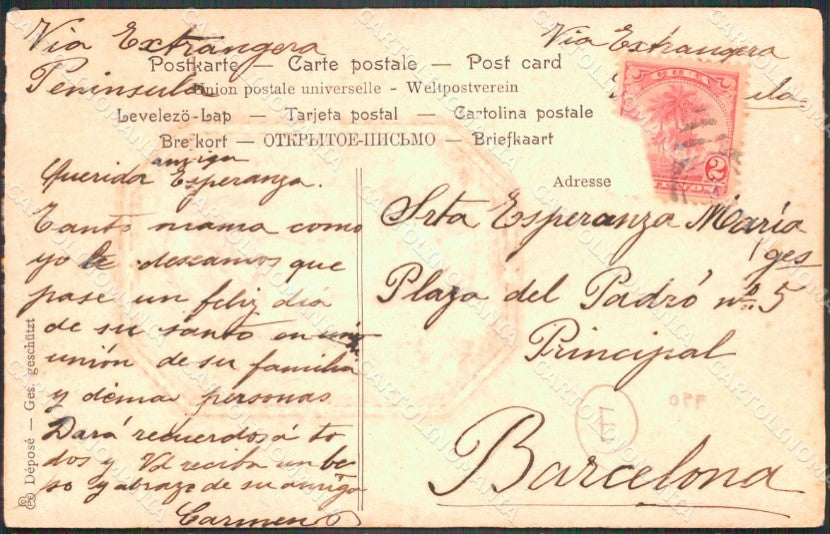 Via Extrangera
Peninsula
Via Estrangera
Postkarte — Carte postale — Post card
Union postale universelle - Weltpostverein
Levelező-Lap — Tarjeta postal — Cartolina postale
Brefkort — ОТКРЫТОЕ-ПИСЬМО — Briefkaart
CUBA
2
Adresse
amiga
Querida Esperanza.
Tanto mama como
yo le deseamos que
pase un feliz dia
de su santo en
unión de su familia
y demas personas
Dará recuerdos á to
dos y Vd reciba un be
so y abrazo de su amiga
Carmen
Srta Esperanza María
ges
Plaza del Padró nº 5
Principal
Barcelona
Déposé — Ges. geschützt
CARTOLINOMANIA